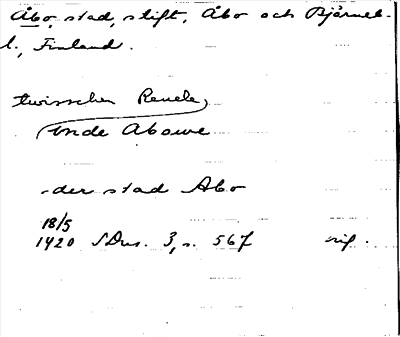 Åbo, stad, stift, Åbo och Björneb.
l., Finland.
twisschen Reuele
unde Abowe
-der stad Abo
18/5
1420 SDns. 3, s. 567 orig.